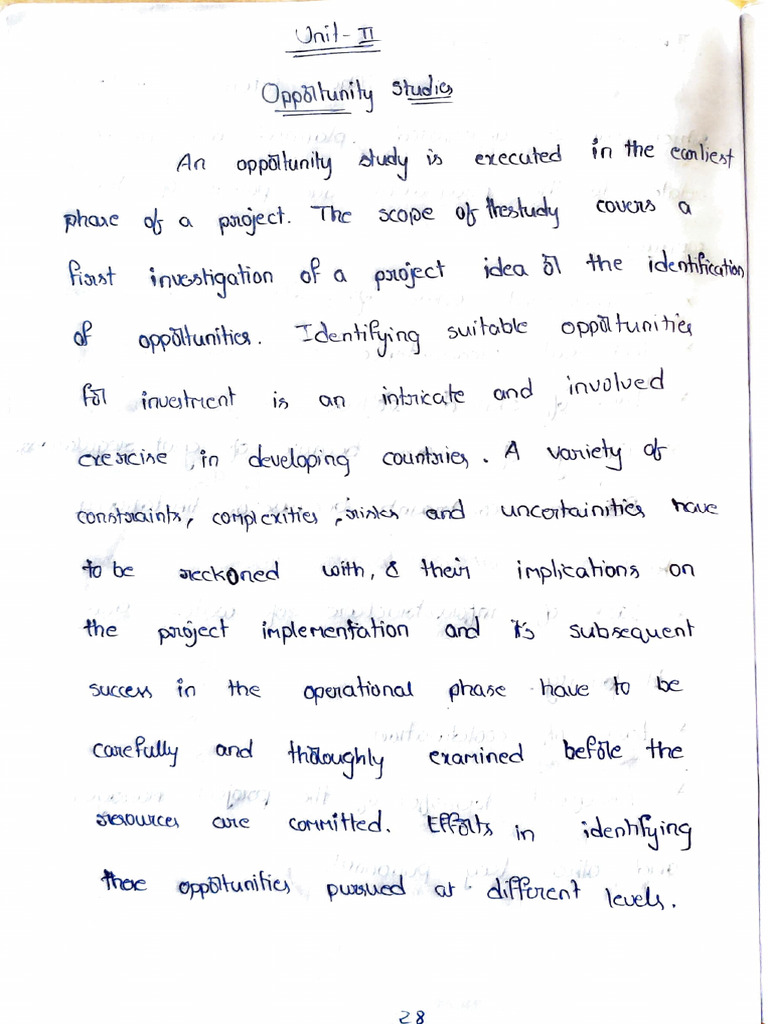 Unit - II
Opportunity Studies
An opportunity study is executed in the earliest
phase of a project. The scope of the study covers a
first investigation of a project idea or the identification
of opportunities. Identifying suitable opportunities
for investment is an intricate and involved
exercise, in developing countries. A variety of
constraints, complexities, risks and uncertainities have
to be reckoned with, & their implications on
the project implementation and it's subsequent
success in the operational phase have to be
carefully and thoroughly examined before the
resources are committed. Efforts in identifying
these opportunities pursued at different levels.
28